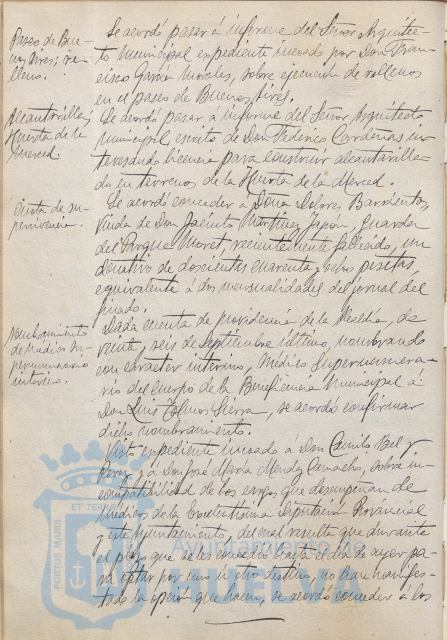 Paseo de Bue-
nos Aires; re-
llenos.
Se acordó pasar á informe del Señor Arquitec-
to Municipal expediente incoado por Don Fran-
cisco García Morales, sobre ejecución de rellenos
en el paseo de Buenos Aires.
Alcantarilla,
Huerta de la
Merced.
Se acordó pasar á informe del Señor Arquitecto
Municipal escrito de Don Federico Cárdenas in-
teresando licencia para construir alcantarilla-
do en terrenos de la Huerta de la Merced.
Junta de su-
pervivencia.
Se acordó conceder á Doña Dolores Barrientos,
Viuda de Don Jacinto Martínez Japón, Guarda
del Parque Moret, recientemente fallecido, un
donativo de doscientas cuarenta y ocho pesetas,
equivalente á dos mensualidades del jornal del
finado.
Nombramiento
de Médico su-
pernumerario
interino.
Dada cuenta de providencia de la Alcaldía, de
veinti seis de Septiembre último, nombrando
con carácter interino, Médico Supernumera-
rio del cuerpo de la Beneficencia Municipal á
Don Luis Tolmos Sierra, se acordó confirmar
dicho nombramiento.
Visto expediente incoado á Don Camilo Bel y
Pery, y á Don José María Mendez Camacho, sobre in-
compatibilidad de los cargos que desempeñan de
Médicos de la Excelentísima Diputación Provincial
y este Ayuntamiento, del cual resulta que durante
el plazo que se les concedió hasta el día de ayer pa-
ra optar por uno ú otro destino, no han manifes-
tado la opción que hacen, se acordó conceder á los
PORTUS MARIS ET TERRAE
Ayuntamiento
HUELVA